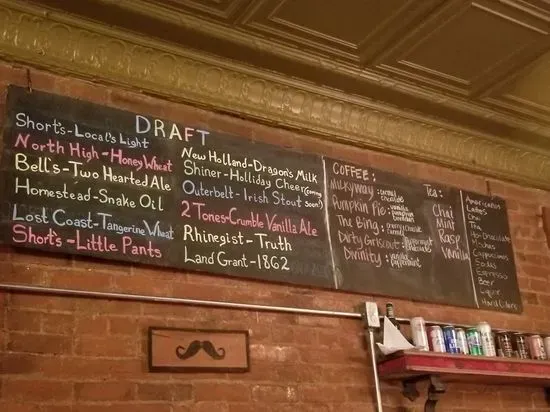 DRAFT
Short's-Local's Light
North High-Honey Wheat
Bell's-Two Hearted Ale
Homestead-Snake Oil
Lost Coast-Tangerine Wheat
Short's-Little Pants
New Holland-Dragon's Milk
Shiner-Holliday Cheer (coming soon!)
Outerbelt-Irish Stout
2 Tones-Crumble Vanilla Ale
Rhinegist-Truth
Land Grant-1862
COFFEE:
Milkyway: caramel chocolate
Pumpkin Pie: vanilla pumpkin
The Bing: cherry, chocolate
Dirty Girlscout: Peppermint
Divinity: vanilla peppermint
Tea:
Chai
Mint
Rasp
Vanilla
Americanos
Lattes
Chai
Tea
Hot Chocolate
Mochas
Cappuccinos
Sodas
Espresso
Beer
Liquor
Hard Ciders